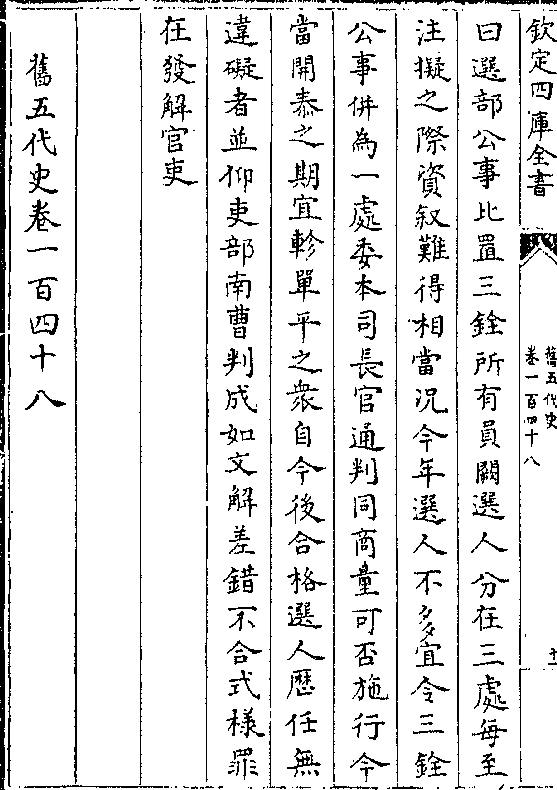 欽定四庫全書
舊五代史
卷一百四十八
十一
曰選部公事比置三銓所有員闕選人分在三處每至
注擬之際資敘難得相當況今年選人不多宜令三銓
公事併為一處委本司長官通判同商量可否施行今
當開泰之期宜軫單平之衆自今後合格選人歴任無
違礙者並仰吏部南曹判成如文解差錯不合式樣罪
在發解官吏
舊五代史卷一百四十八